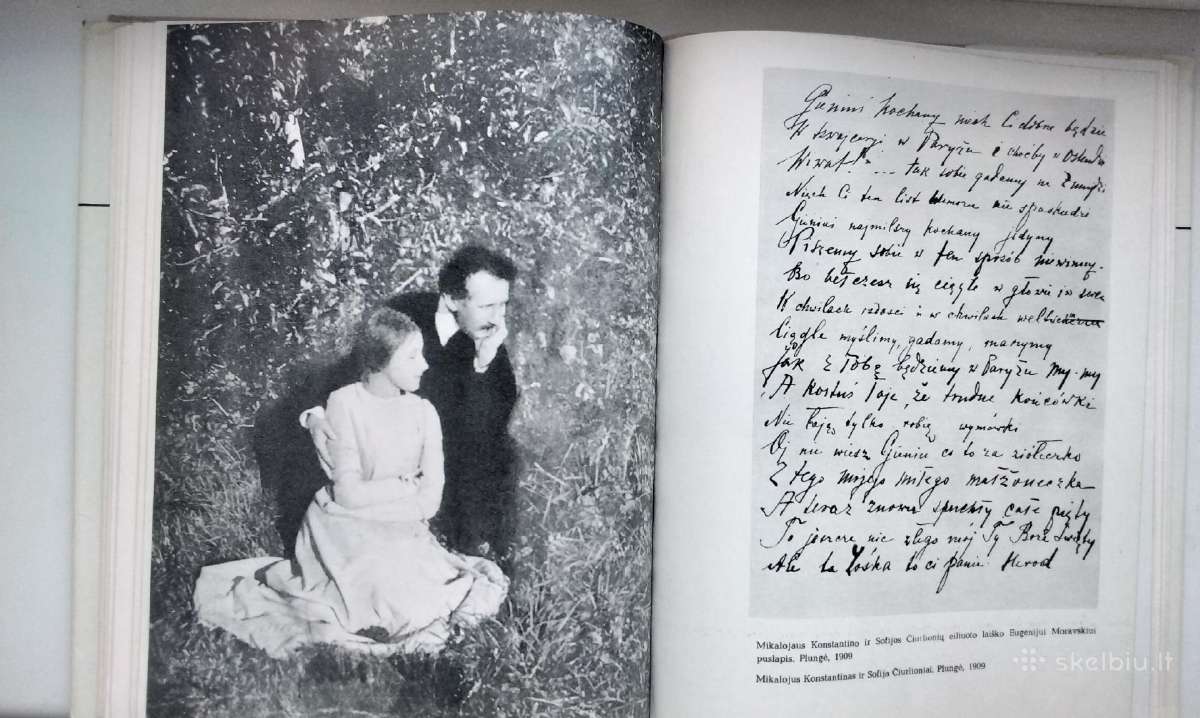 Gieniuś kochany niech Ci dobrze będzie
W Szwajcarji w Paryżu i choćby w Ostendzie
Wiwat! ... tak sobie gadamy na Żmudzi
Niech Ci ten list humoru nie spaskudzi
Gieniuś najmilszy kochany jedyny
Piszemy sobie w ten sposób niewinny.
Bo bełczesz się ciągle w głowie i w sercu
K chwilach radości i w chwilach
Ciągle myślimy, gadamy, marzymy
Jak z Tobą będziemy w Paryżu my-my
A Kostuś łaje, że trudne końcówki
Nie łają tylko robię wymówki
Oj nie wiesz Gieniu co to za ziółeczko
Z tego mojego miłego małżoneczka
A teraz znowu spuchły całe pięty
To jeszcze nic złego mój Ty Boże Święty
Ale ta Zośka to ci panie Herod
Mikalojaus Konstantino ir Sofijos Čiurlionių eiliuoto laiško Eugenijui Moravskiui
puslapis. Plungė, 1909
Mikalojus Konstantinas ir Sofija Čiurlioniai. Plungė, 1909
skelbiu.lt